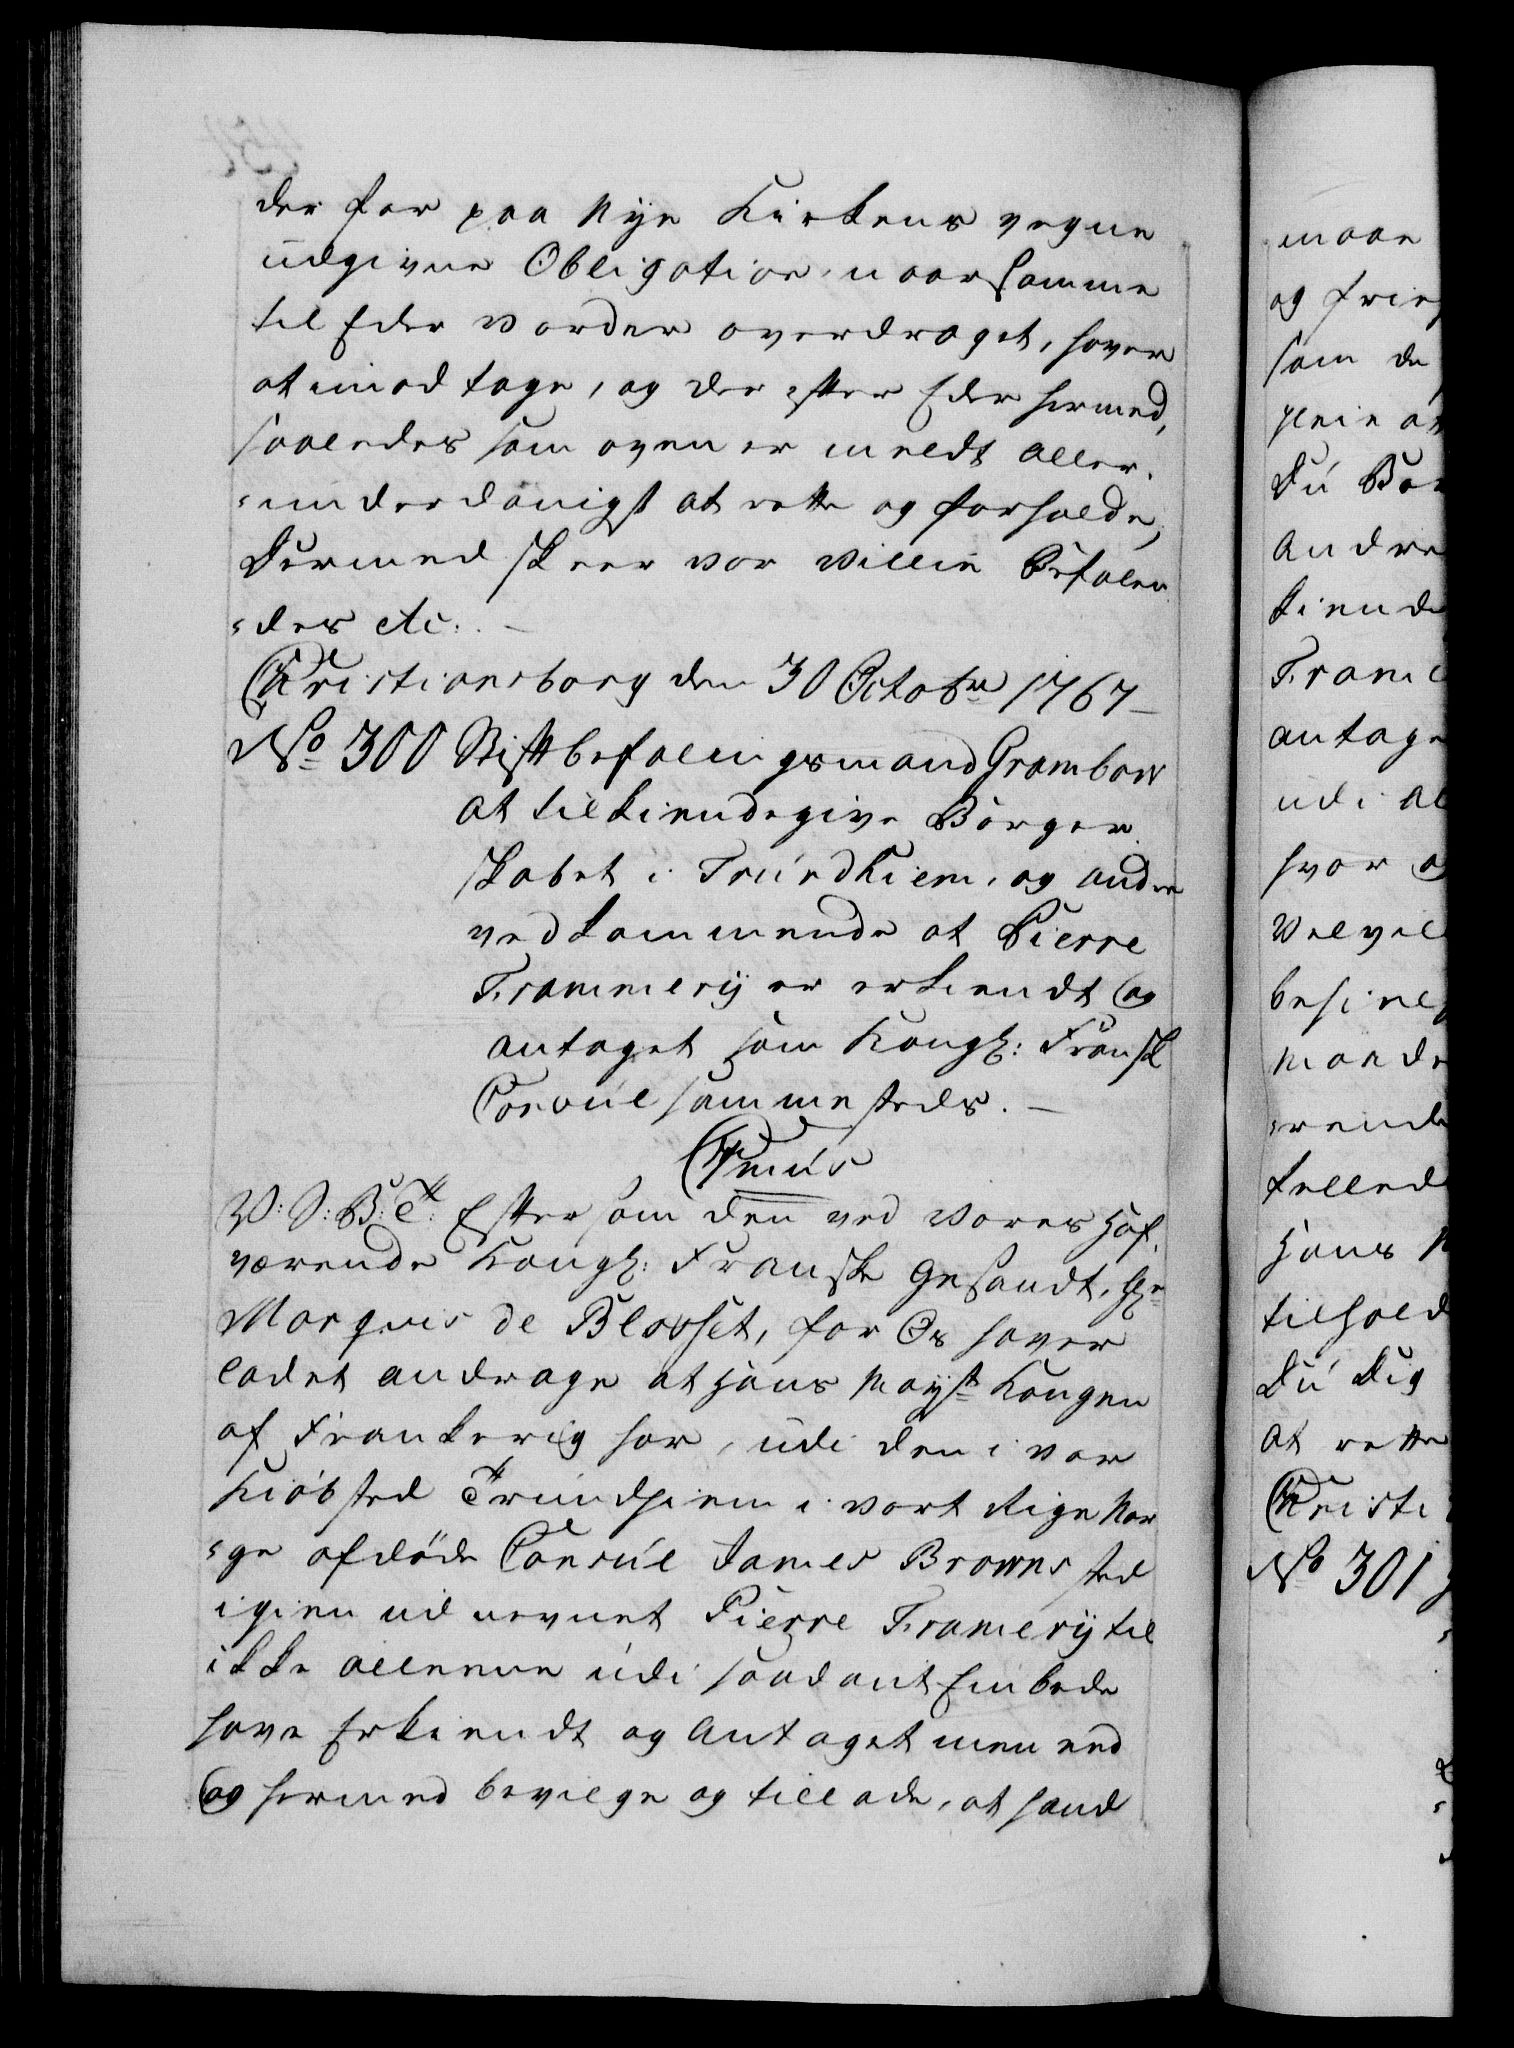 der for paa Nÿe Kirkens vegne
udgivne Obligation, naar samme
til Eder vorder overdraget, haver
at imodtage, og der efter Eder hermed,
saaledes som oven er meldt aller-
=underdanigst at rette og forholde,
Dermed skeer vor villie Befalen-
=des etc:. —
Christiansborg den 30 Octobr 1767 —
No 300 Stiftbefalingsmand Grambow
at tilkiendegive Borger-
skabet i Trundhiem, og andre
vedkommende at Pierre
Frammerÿ er erkiendt og
antaget som Kongl: Fransk
Consul sammesteds. —
Chr:
V: S: B: T: Eftersom den ved vores Hof-
værende Kongl: Franske Gesandt, Hr
Marquis de Blosset, for Os haver
ladet andrage at Hans Mayst Kongen
af Frankerig har, udi den i vor
Kiöbsted Trundhiem i vort Rige Nor
=ge afdöde Consul James Browns sted
igien udnevnet Pierre Framerÿ til
ikke allene udi saadant Embede
have Erkiendt og Antaget men end
og hermed bevilge og tillade, at hand
maae
og frie
som de
Du Bor
Andre
kiende
Frame
antage
udi Al
hvor og
Velvil
Hans M
tilhold
Du Dig
at rette
Christi
No 301